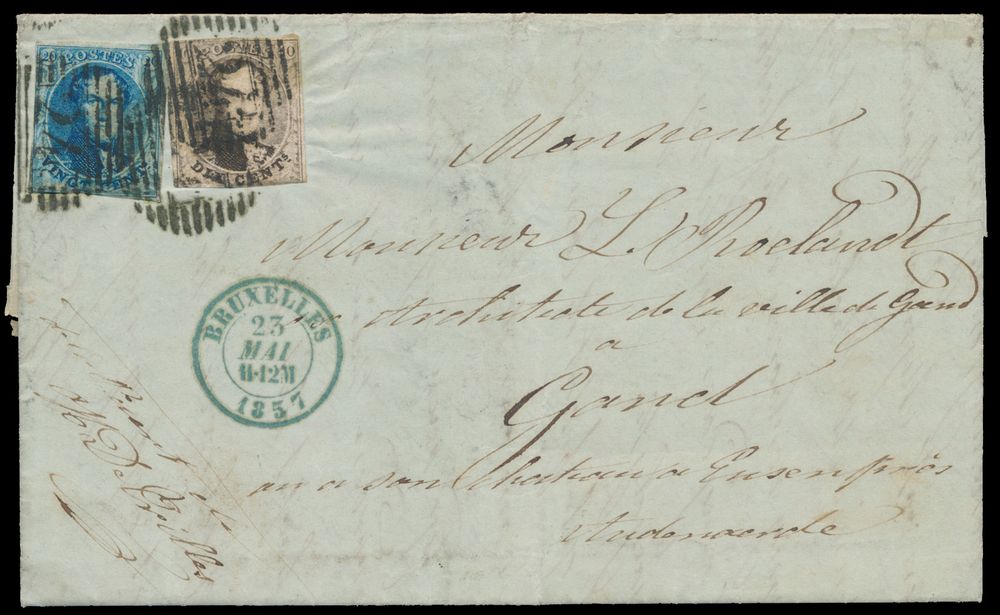 20 POSTES
VINGT CENTS
POSTES 10
DIX CENTS
Monsieur
Monsieur L. Roelandt
Architecte de la ville de Gand
a
Gand
ou a son Chateau a près
Audenaerde
BRUXELLES
23
MAI
11-12M
1857
De